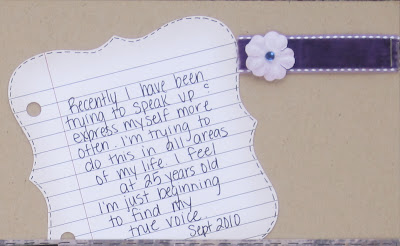 Recently I have been
trying to speak up &
express myself more
often. I'm trying to
do this in all areas
of my life. I feel
at 25 years old
i'm just beginning
to find my
true voice.
Sept 2010